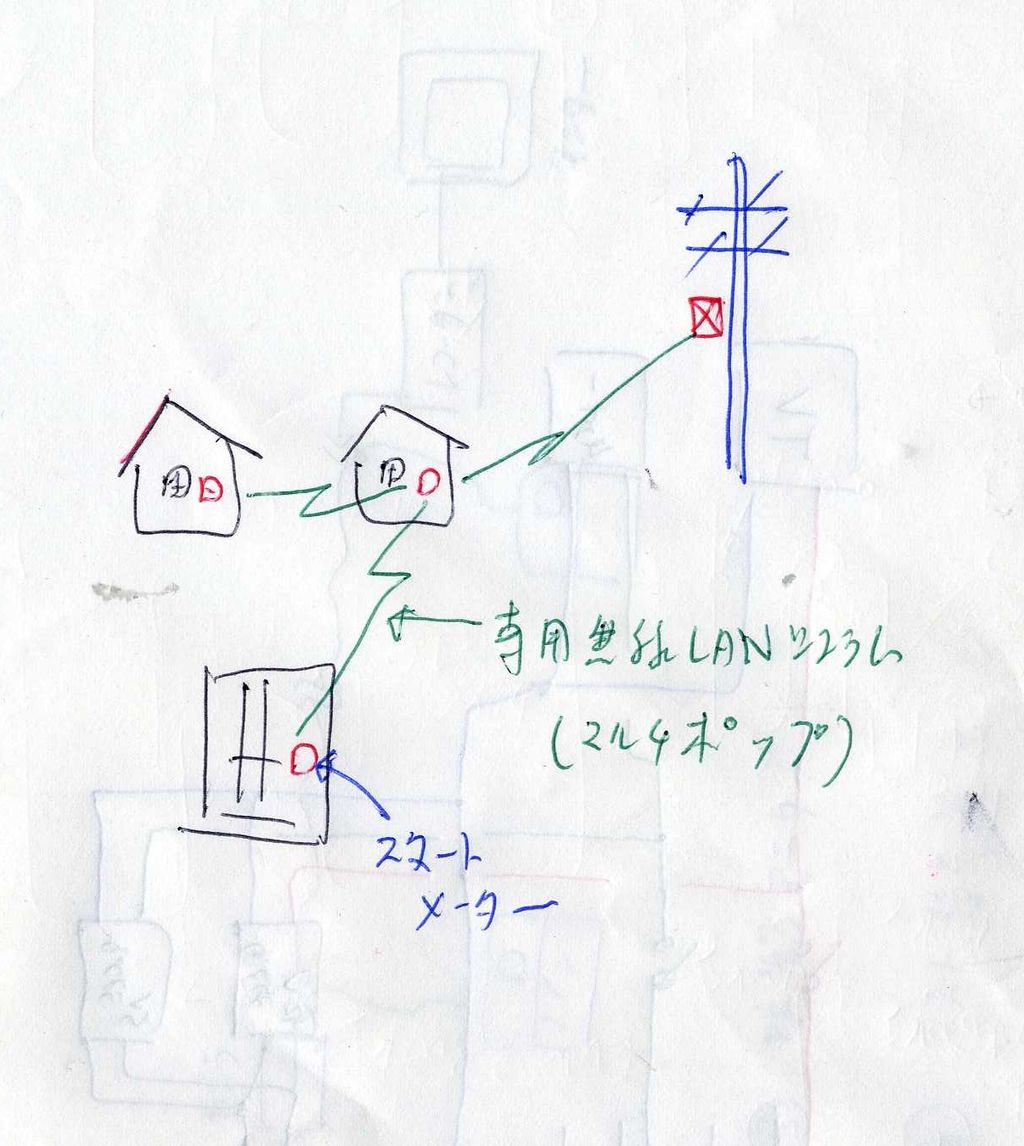 専用無線LANシステム
(マルチポップ)
スマート
メーター